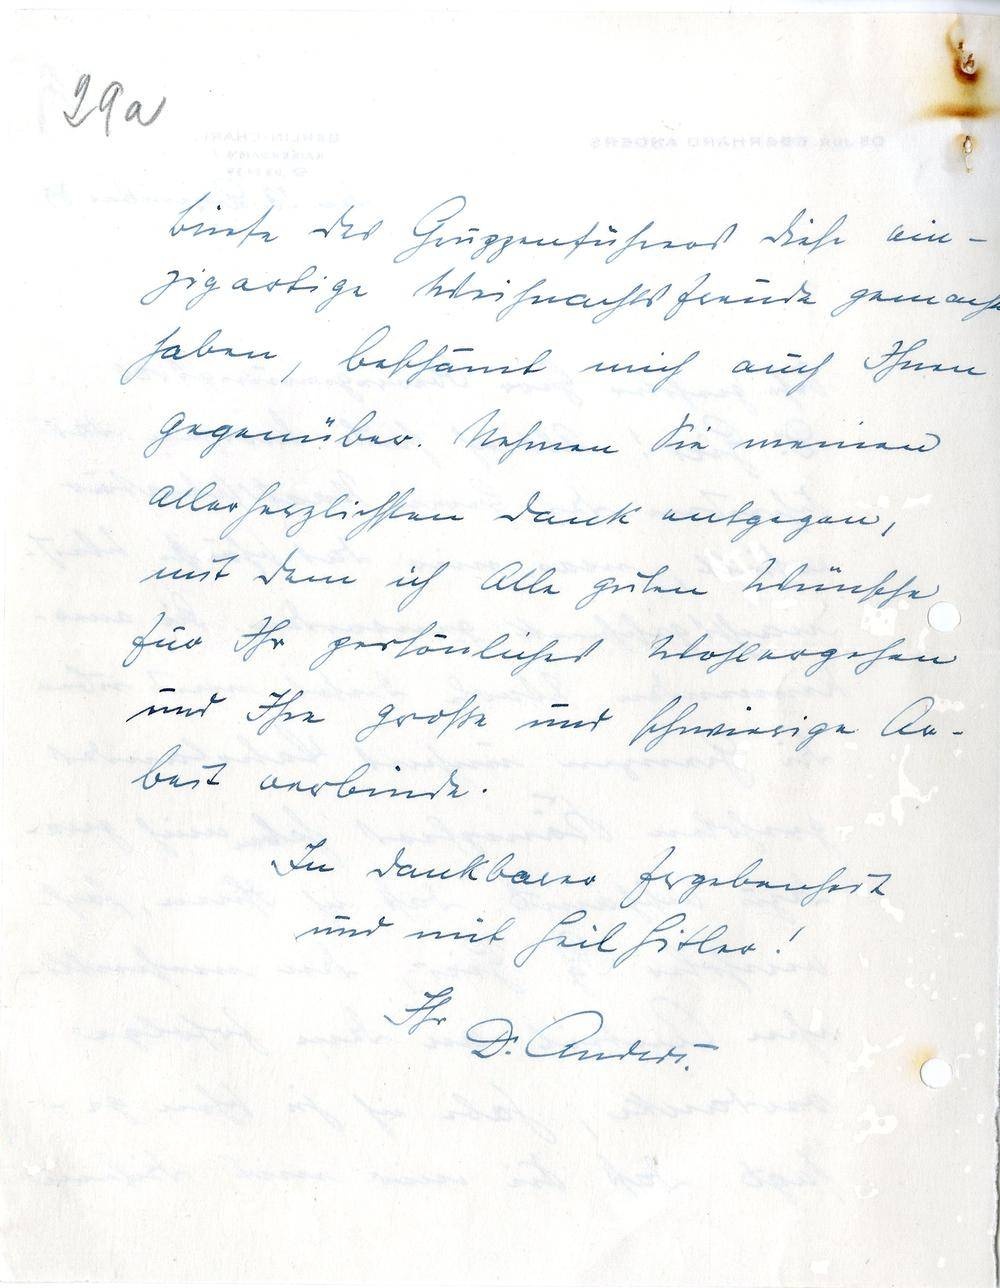 29a
briefe des Gruppenführers diese ein-
zigartige Weihnachtsfreude gemacht
haben, beschämt mich auch Ihnen
gegenüber. Nehmen Sie meinen
allerherzlichsten Dank entgegen,
mit dem ich alle guten Wünsche
für Ihr persönliches Wohlergehen
und Ihre große und schwierige Ar-
beit verbinde.
In dankbarer Ergebenheit
und mit Heil Hitler!
Ihr
Dr. Anders.